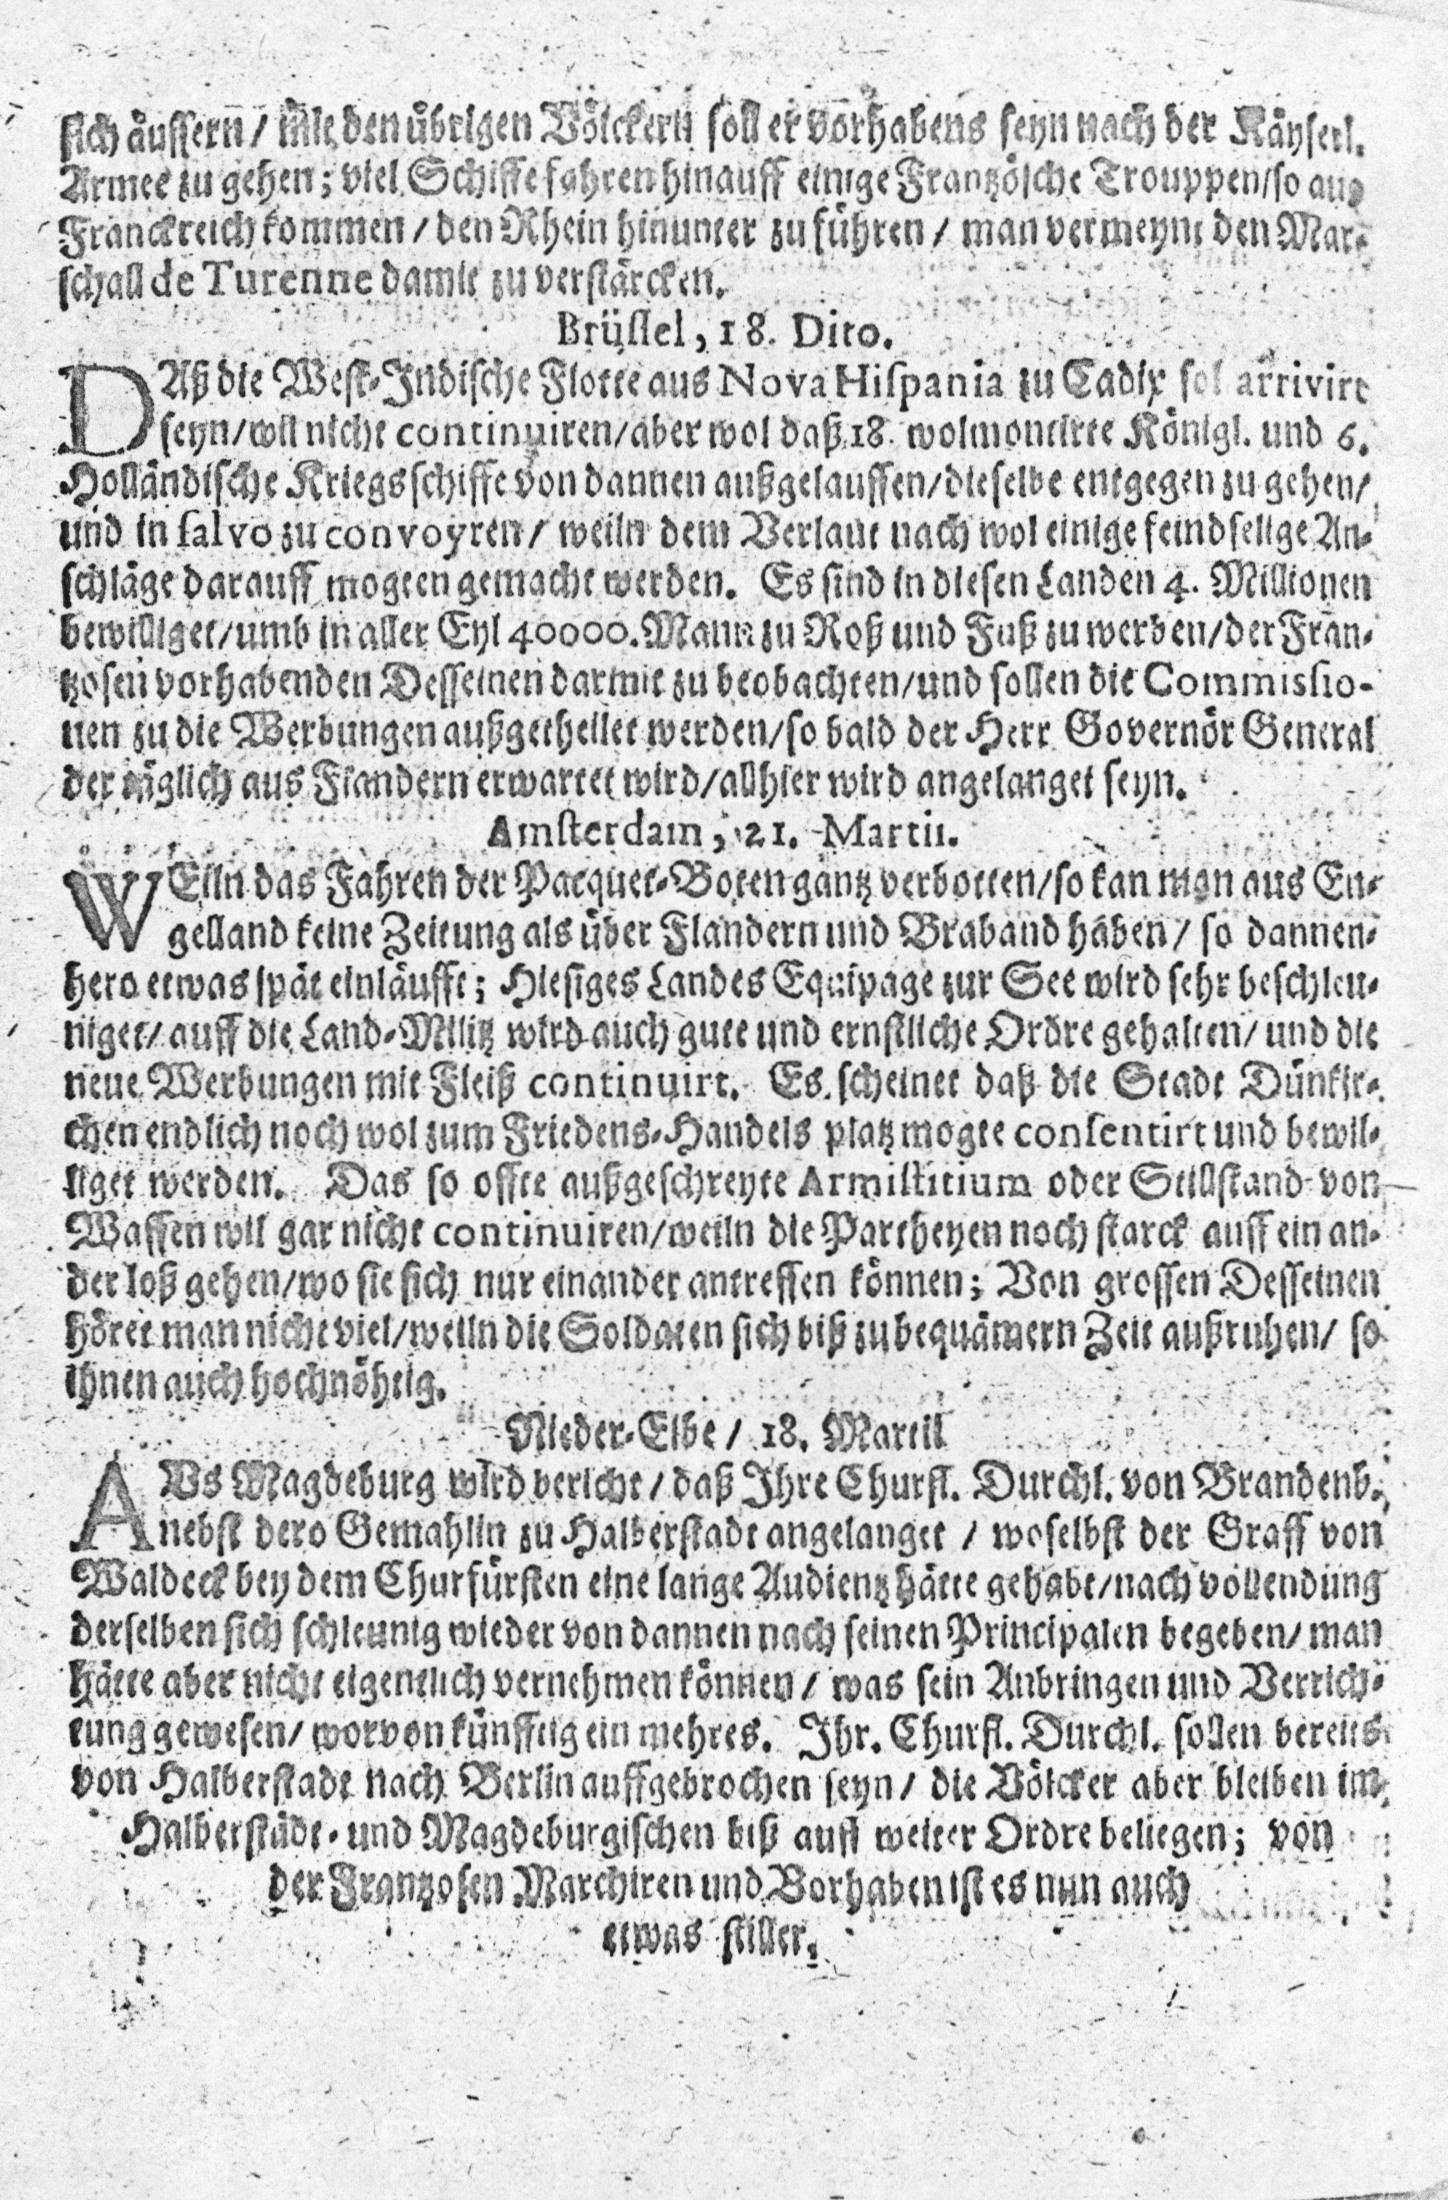 sich äussern / mit den übrigen Völckern soll er vorhabens seyn nach der Käyserl.
Armee zu gehen; viel Schiffe fahren hinauff einige Frantzösche Trouppen/so aus
Franckreich kommen / den Rhein hinunter zu führen / man vermeynt den Mar-
schall de Turenne damit zu verstärcken.
Brüssel, 18. Dito.
DAß die West-Indische Flotte aus Nova Hispania zu Cadix sol arrivirt
seyn/wil nicht continuiren/aber wol daß 18. wolmontirte Königl. und 6.
Holländische Kriegsschiffe von dannen außgelauffen/dieselbe entgegen zu gehen/
und in salvo zu convoyren/ weiln dem Verlaut nach wol einige feindselige An-
schläge darauff mogten gemacht werden. Es sind in diesen Landen 4. Millionen
bewilliget/umb in aller Eyl 40000. Mann zu Roß und Fuß zu werben/der Fran-
tzosen vorhabenden Desseinen darmit zu beobachten/und sollen die Commissio-
nen zu die Werbungen außgetheilet werden/so bald der Herr Governör General
der täglich aus Flandern erwartet wird/allhier wird angelanget seyn.
Amsterdam, 21. Martii.
WEiln das Fahren der Pacquet-Boten gäntz verbotten/so kan man aus En-
gelland keine Zeitung als über Flandern und Braband haben / so dannen-
hero etwas spät einläufft; Hiesiges Landes Equipage zur See wird sehr beschleu-
niget/ auff die Land-Militz wird auch gute und ernstliche Ordre gehalten/ und die
neue Werbungen mit Fleiß continuirt. Es scheinet daß die Stadt Dünkir-
chen endlich noch wol zum Friedens-Handels platz mogte consentirt und bewil-
liget werden. Das so offte außgeschreyte Armistitium oder Stillstand von
Waffen wil gar nicht continuiren/weiln die Partheyen noch starck auff ein an-
der loß gehen/wo sie sich nur einander antreffen können; Von grossen Desseinen
höret man nicht viel/weiln die Soldaten sich biß zu bequämern Zeit außruhen/ so
ihnen auch hochnöhtig.
Nieder-Elbe / 18. Martii
AUs Magdeburg wird bericht / daß Ihre Churfl. Durchl. von Brandenb.
nebst dero Gemahlin zu Halberstadt angelanget / woselbst der Graff von
Waldeck bey dem Churfürsten eine lange Audientz hätte gehabt/nach vollendung
derselben sich schleunig wieder von dannen nach seinen Principalen begeben/ man
hätte aber nicht eigentlich vernehmen können / was sein Anbringen und Verrich-
tung gewesen/ worvon künfftig ein mehres. Ihr. Churfl. Durchl. sollen bereits
von Halberstadt nach Berlin auffgebrochen seyn / die Völcker aber bleiben im
Halberstädt- und Magdeburgischen biß auff weiter Ordre beliegen; von
der Frantzosen Marchiren und Vorhaben ist es nun auch
etwas stiller.